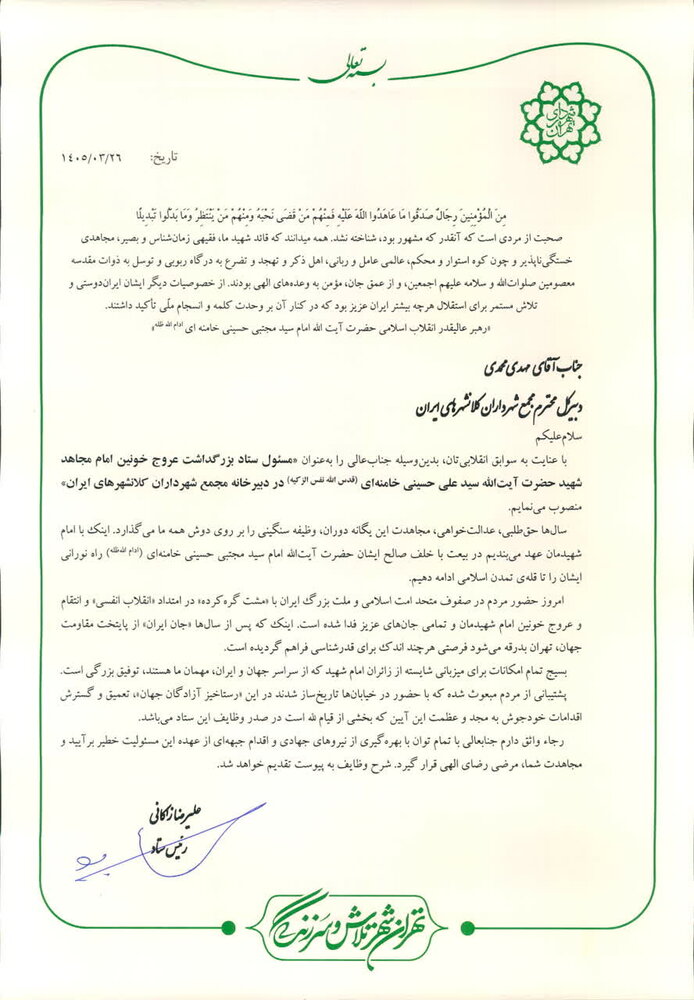 بسمه تعالی
شهرداری تهران
تاریخ: ۱۴۰۵/۰۳/۲۶
مِنَ الْمُؤْمِنِینَ رِجَالٌ صَدَقُوا مَا عَاهَدُوا اللَّهَ عَلَیْهِ فَمِنْهُمْ مَنْ قَضَی نَحْبَهُ وَمِنْهُمْ مَنْ یَنْتَظِرُ وَمَا بَدَّلُوا تَبْدِیلًا
صحبت از مردی است که آنقدر که مشهور بود، شناخته نشد. همه میدانند که قائد شهید ما، فقیهی زمان‌شناس و بصیر، مجاهدی
خستگی‌ناپذیر و چون کوه استوار و محکم، عالمی عامل و ربانی، اهل ذکر و تهجد و تضرع به درگاه ربوبی و توسل به ذوات مقدسه
معصومین صلوات‌الله و سلامه علیهم اجمعین، و از عمق جان، مؤمن به وعده‌های الهی بودند. از خصوصیات دیگر ایشان ایران‌دوستی و
تلاش مستمر برای استقلال هرچه بیشتر ایران عزیز بود که در کنار آن بر وحدت کلمه و انسجام ملّی تأکید داشتند.
«رهبر عالیقدر انقلاب اسلامی حضرت آیت الله امام سید مجتبی حسینی خامنه ای ادام الله ظله»
جناب آقای مهدی محمدی
دبیرکل محترم مجمع شهرداران کلانشهرهای ایران
سلام‌علیکم
با عنایت به سوابق انقلابی‌تان، بدین‌وسیله جناب‌عالی را به‌عنوان «مسئول ستاد بزرگداشت عروج خونین امام مجاهد
شهید حضرت آیت‌الله سید علی حسینی خامنه‌ای (قدس الله نفس الزکیه) در دبیرخانه مجمع شهرداران کلانشهرهای ایران»
منصوب می‌نمایم.
سال‌ها حق‌طلبی، عدالت‌خواهی، مجاهدت این یگانه دوران، وظیفه سنگینی را بر روی دوش همه ما می‌گذارد. اینک با امام
شهیدمان عهد می‌بندیم در بیعت با خلف صالح ایشان حضرت آیت‌الله امام سید مجتبی حسینی خامنه‌ای (ادام الله‌ظله) راه نورانی
ایشان را تا قله‌ی تمدن اسلامی ادامه دهیم.
امروز حضور مردم در صفوف متحد امت اسلامی و ملت بزرگ ایران با «مشت گره‌کرده» در امتداد «انقلاب انفسی» و انتقام
و عروج خونین امام شهیدمان و تمامی جان‌های عزیز فدا شده است. اینک که پس از سال‌ها «جان ایران» از پایتخت مقاومت
جهان، تهران بدرقه می‌شود فرصتی هرچند اندک برای قدرشناسی فراهم گردیده است.
بسیج تمام امکانات برای میزبانی شایسته از زائران امام شهید که از سراسر جهان و ایران، مهمان ما هستند، توفیق بزرگی است.
پشتیبانی از مردم مبعوث شده که با حضور در خیابان‌ها تاریخ‌ساز شدند در این «رستاخیز آزادگان جهان»، تعمیق و گسترش
اقدامات خودجوش به مجد و عظمت این آیین که بخشی از قیام لله است در صدر وظایف این ستاد می‌باشد.
رجاء واثق دارم جنابعالی با تمام توان با بهره‌گیری از نیروهای جهادی و اقدام جبهه‌ای از عهده این مسئولیت خطیر برآیید و
مجاهدت شما، مرضی رضای الهی قرار گیرد. شرح وظایف به پیوست تقدیم خواهد شد.
علیرضا زاکانی
رئیس ستاد
تهران شهر تلاش و سرزندگی